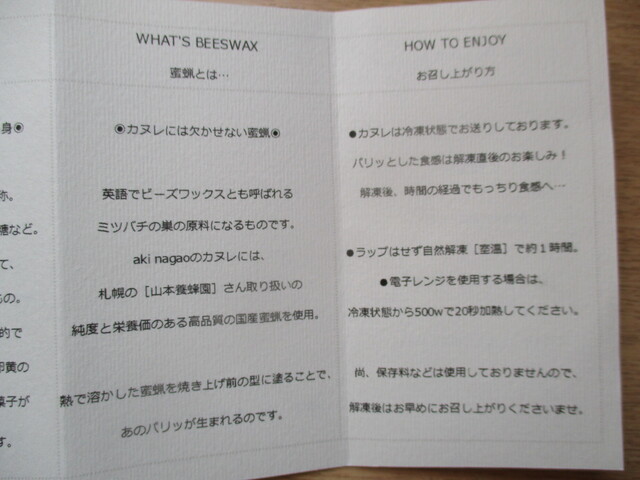 身◉
称。
糖など。
て、
もの。
的で
卵黄の
菓子が
す。
WHAT'S BEESWAX
蜜蝋とは…
◉カヌレには欠かせない蜜蝋◉
英語でビーズワックスとも呼ばれる
ミツバチの巣の原料になるものです。
aki nagaoのカヌレには、
札幌の［山本養蜂園］さん取り扱いの
純度と栄養価のある高品質の国産蜜蝋を使用。
熱で溶かした蜜蝋を焼き上げ前の型に塗ることで、
あのパリッが生まれるのです。
HOW TO ENJOY
お召し上がり方
●カヌレは冷凍状態でお送りしております。
パリッとした食感は解凍直後のお楽しみ！
解凍後、時間の経過でもっちり食感へ…
●ラップはせず自然解凍［室温］で約１時間。
●電子レンジを使用する場合は、
冷凍状態から500wで20秒加熱してください。
尚、保存料などは使用しておりませんので、
解凍後はお早めにお召し上がりくださいませ。